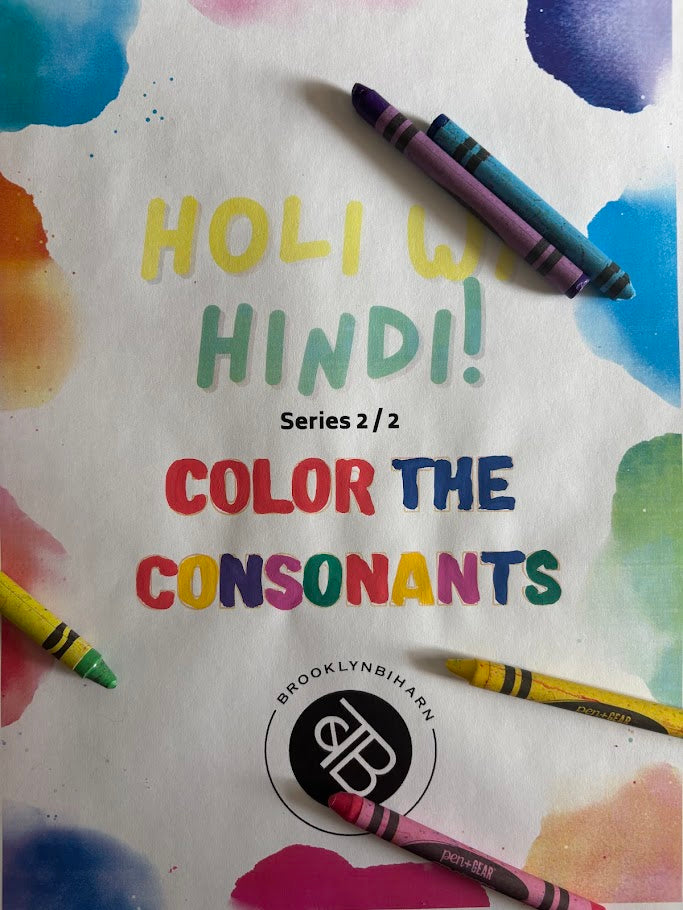 HOLI
HINDI!
Series 2 / 2
COLOR THE
CONSONANTS
BROOKLYNBIHARN
pen+GEAR
pen+GEAR